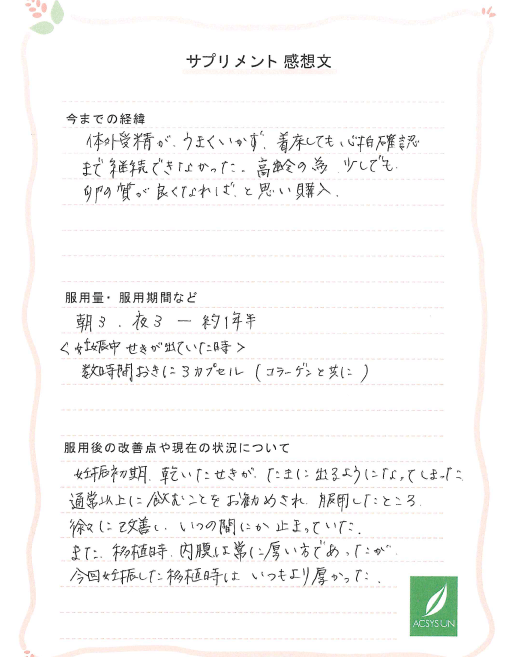 サプリメント 感想文
今までの経緯
体外受精が、うまくいかず、着床しても心拍確認
まで継続できなかった。高齢の為、少しでも
卵の質が良くなれば、と思い購入。
服用量・服用期間など
朝3、夜3 ― 約1年半
<妊娠中せきが出ていた時>
数時間おきに3カプセル (コラーゲンと共に)
服用後の改善点や現在の状況について
妊娠初期、乾いたせきが、たまに出るようになってしまった。
通常以上に飲むことをお勧めされ、服用したところ、
徐々に改善し、いつの間にか止まっていた。
また、移植時、内膜は常に厚い方であったが、
今回妊娠した移植時は、いつもより厚かった。
ACSYSUN